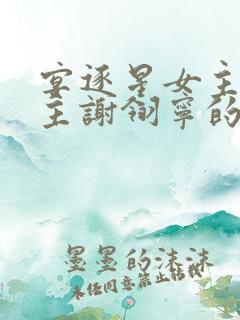 宴逐星女主
主謝翎寧的
墨墨的沫沫
未经同意禁止转载